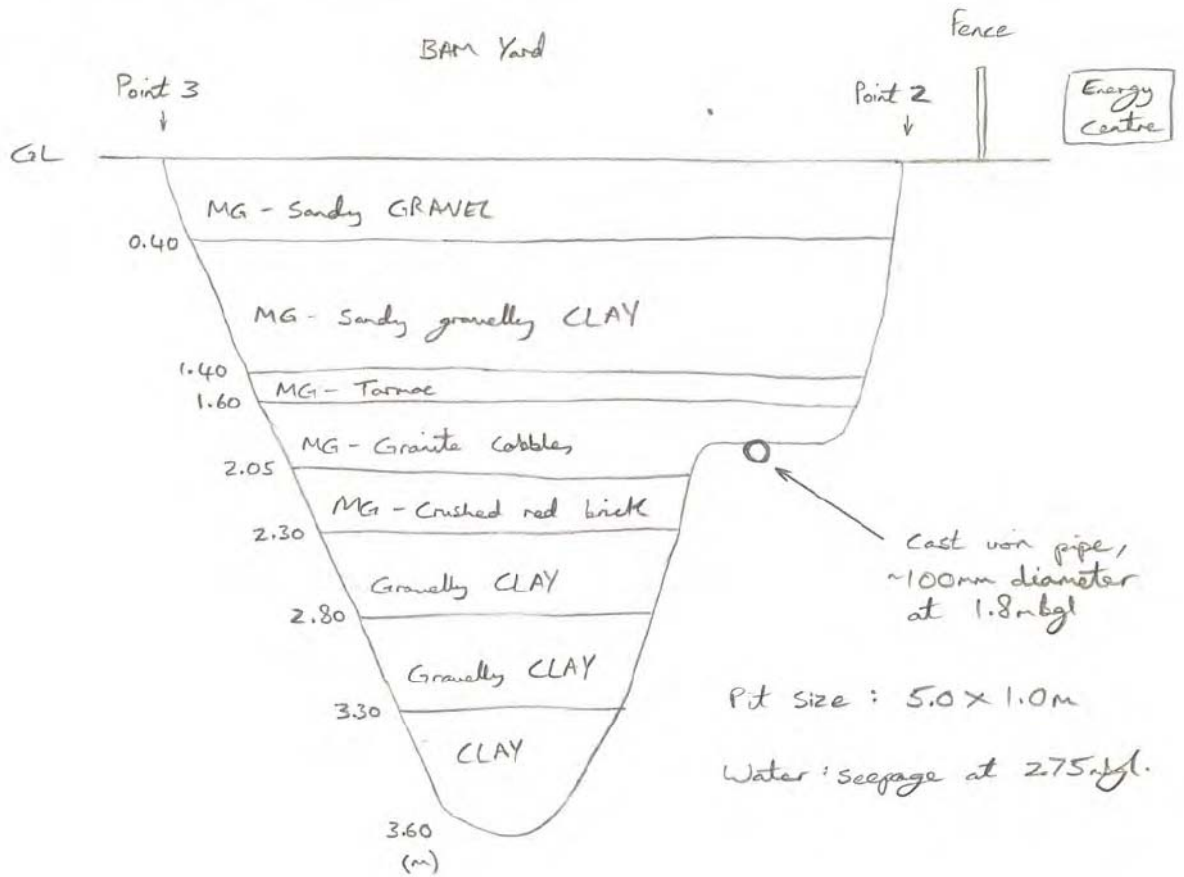 BAM Yard
Fence
Point 3
Point 2
Energy
Centre
GL
MG - Sandy GRAVEL
0.40
MG - Sandy gravelly CLAY
1.40
MG - Tarmac
1.60
MG - Granite Cobbles
2.05
MG - Crushed red brick
2.30
Gravelly CLAY
2.80
Gravelly CLAY
3.30
CLAY
3.60
(m)
Cast iron pipe,
~100mm diameter
at 1.8mbgl
Pit Size : 5.0 × 1.0m
Water : seepage at 2.75mbgl.